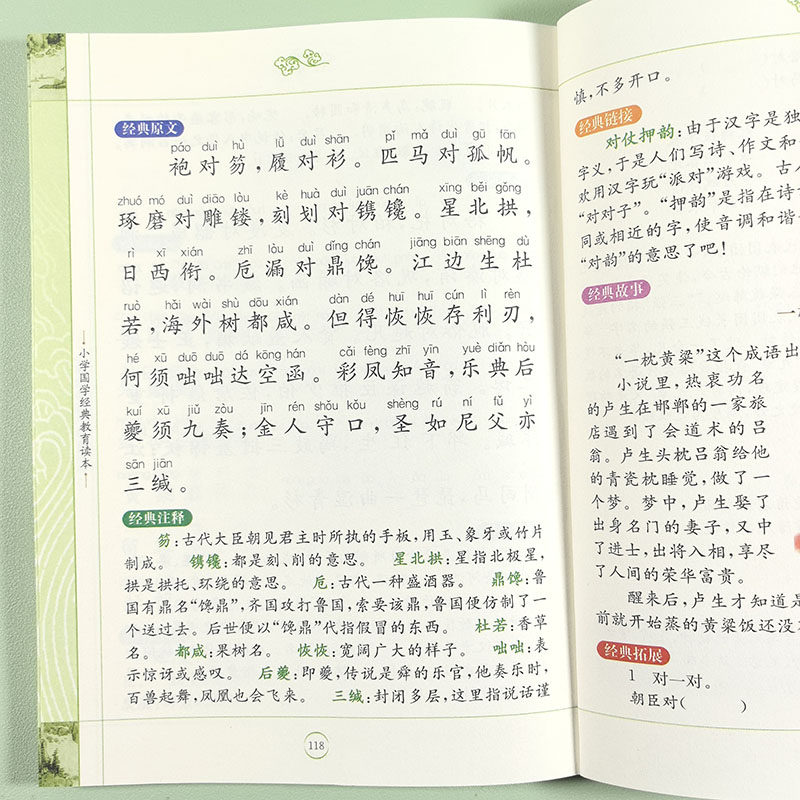 经典原文
páo duì hù lǚ duì shān pǐ mǎ duì gū fān
袍对笏，履对衫。匹马对孤帆。
zhuó mó duì diāo lòu kè huà duì juān chán xīng běi gǒng
琢磨对雕镂，刻划对镌镵。星北拱，
rì xī xián zhī lòu duì dǐng chán jiāng biān shēng dù
日西衔。卮漏对鼎馋。江边生杜
ruò hǎi wài shù dōu xián dàn dé huī huī cún lì rèn
若，海外树都咸。但得恢恢存利刃，
hé xū duō duō dá kōng hán cǎi fèng zhī yīn yuè diǎn hòu
何须咄咄达空函。彩凤知音，乐典后
kuí xū jiǔ zòu jīn rén shǒu kǒu shèng rú ní fǔ yì
夔须九奏；金人守口，圣如尼父亦
sān jiān
三缄。
经典注释
笏：古代大臣朝见君主时所执的手板，用玉、象牙或竹片
制成。 镌镵：都是刻、削的意思。 星北拱：星指北极星，
拱是拱托、环绕的意思。 卮：古代一种盛酒器。 鼎馋：鲁
国有鼎名“馋鼎”，齐国攻打鲁国，索要该鼎，鲁国便仿制了一
个送过去。后世便以“馋鼎”代指假冒的东西。 杜若：香草
名。 都咸：果树名。 恢恢：宽阔广大的样子。 咄咄：表
示惊讶或感叹。 后夔：即夔，传说是舜的乐官，他奏乐时，
百兽起舞，凤凰也会飞来。 三缄：封闭多层，这里指说话谨
118
小学国学经典教育读本
慎，不多开口。
经典链接
对仗押韵：由于汉字是独
字义，于是人们写诗、作文和
欢用汉字玩“派对”游戏。古
“对对子”。“押韵”是指在诗
同或相近的字，使音调和谐
“对韵”的意思了吧！
经典故事
一
“一枕黄粱”这个成语出
小说里，热衷功名
的卢生在邯郸的一家旅
店遇到了会道术的吕
翁。卢生头枕吕翁给他
的青瓷枕睡觉，做了一
个梦。梦中，卢生娶了
出身名门的妻子，又中
了进士，出将入相，享尽
了人间的荣华富贵。
醒来后，卢生才知道是
前就开始蒸的黄粱饭还没
经典拓展
1 对一对。
朝臣对（ ）